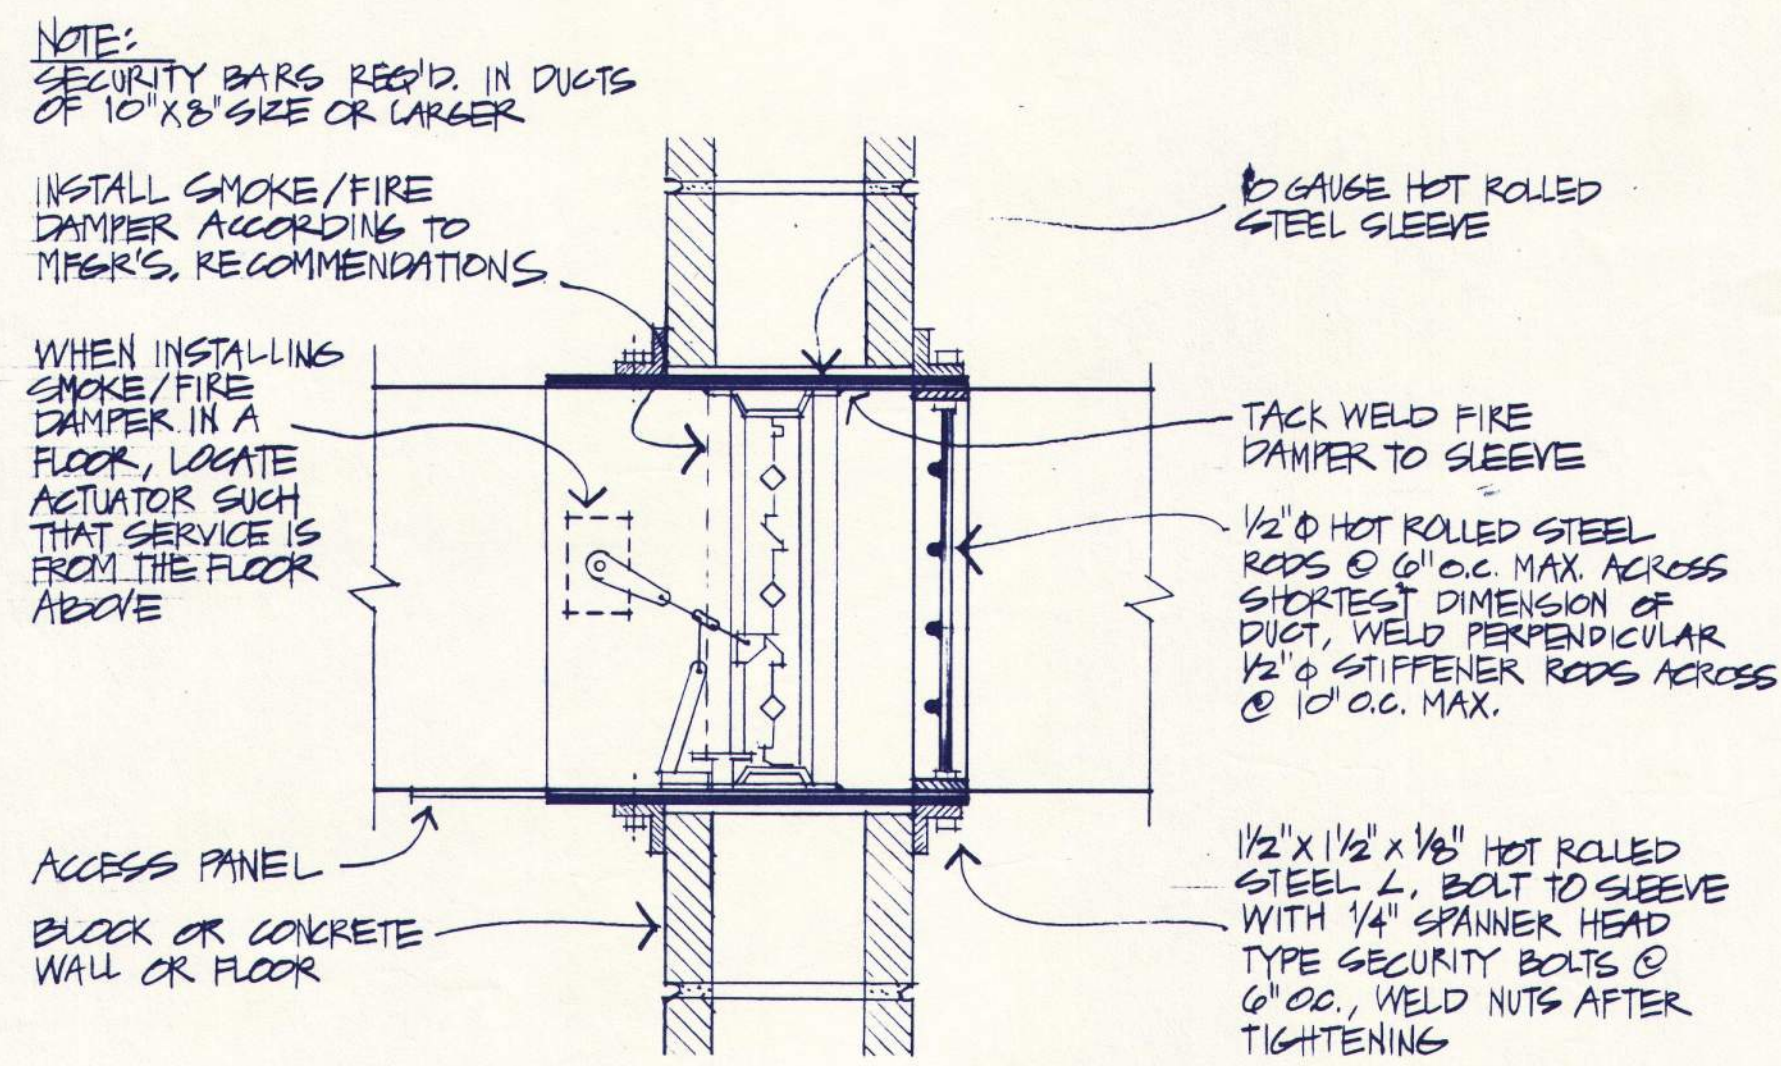 NOTE:
SECURITY BARS REQ'D. IN DUCTS
OF 10"X8" SIZE OR LARGER
INSTALL SMOKE/FIRE
DAMPER ACCORDING TO
MFGR'S. RECOMMENDATIONS
WHEN INSTALLING
SMOKE/FIRE
DAMPER IN A
FLOOR, LOCATE
ACTUATOR SUCH
THAT SERVICE IS
FROM THE FLOOR
ABOVE
ACCESS PANEL
BLOCK OR CONCRETE
WALL OR FLOOR
10 GAUGE HOT ROLLED
STEEL SLEEVE
TACK WELD FIRE
DAMPER TO SLEEVE
1/2"Φ HOT ROLLED STEEL
RODS @ 6" O.C. MAX. ACROSS
SHORTEST DIMENSION OF
DUCT, WELD PERPENDICULAR
1/2"Φ STIFFENER RODS ACROSS
@ 10" O.C. MAX.
1 1/2" X 1 1/2" X 1/8" HOT ROLLED
STEEL L, BOLT TO SLEEVE
WITH 1/4" SPANNER HEAD
TYPE SECURITY BOLTS @
6" O.C., WELD NUTS AFTER
TIGHTENING